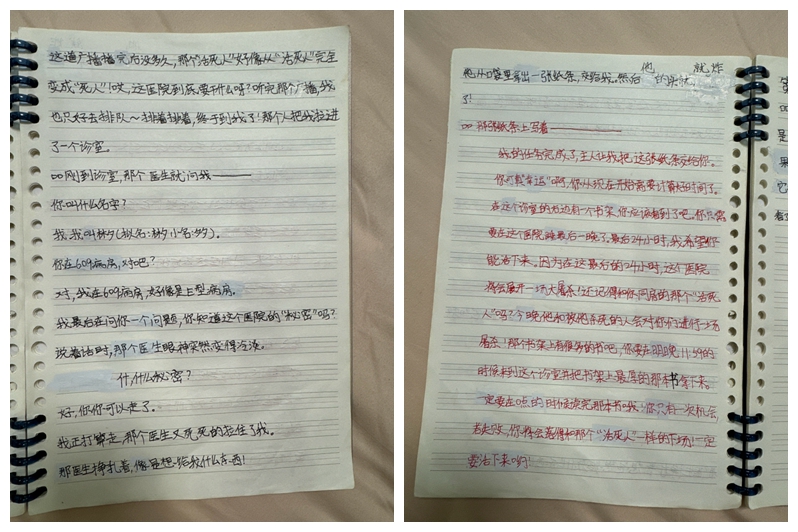 这道广播播完后没多久,那个“活死人”好像从“活死人”完全
变成“死人”!哎,这医院到底要干什么呀?听完那个广播,我
也只好去排队~排着排着,终于到我了!那个人把我拉进
了一个诊室。
∞刚到诊室,那个医生就问我——
你叫什么名字?
我,我叫林夕(拟名:林夕 小名:夕)。
你在609病房,对吧?
对,我在609病房,好像是E型病房。
我最后在问你一个问题,你知道这个医院的“秘密”吗?
说着话时,那个医生眼神突然变得冷漠。
什,什么秘密?
好,你你可以走了。
我正打算走,那个医生又死死的拉住了我。
那医生挣扎着,像是想给我什么东西!
他从口袋里拿出一张纸条,交给我。然后他的身体就炸
了!
∞那张纸条上写着——
我的任务完成了,主人让我把这张纸条交给你。
你可真“幸运”啊,你从现在开始需要计算好时间了。
在这个诊室的右边有一个书架,你应该看到了吧,你只需
要在这个医院睡最后一晚了。最后24小时,我希望你
能活下来。因为在这最后的24小时,这个医院
将会展开一场大屠杀!还记得和你同房的那个“活死
人”吗?今晚他和被他杀死的人会对你们进行一场
屠杀!那个书架上有很多的书吧,你要在明晚11:59的
时候来到这个诊室并把书架上最厚的那本书拿下来。
一定要在0点的时候读完那本书哦!你只有一次机会,
若失败,你将会落得和那个“活死人”一样的下场!一定
要活下来哟!